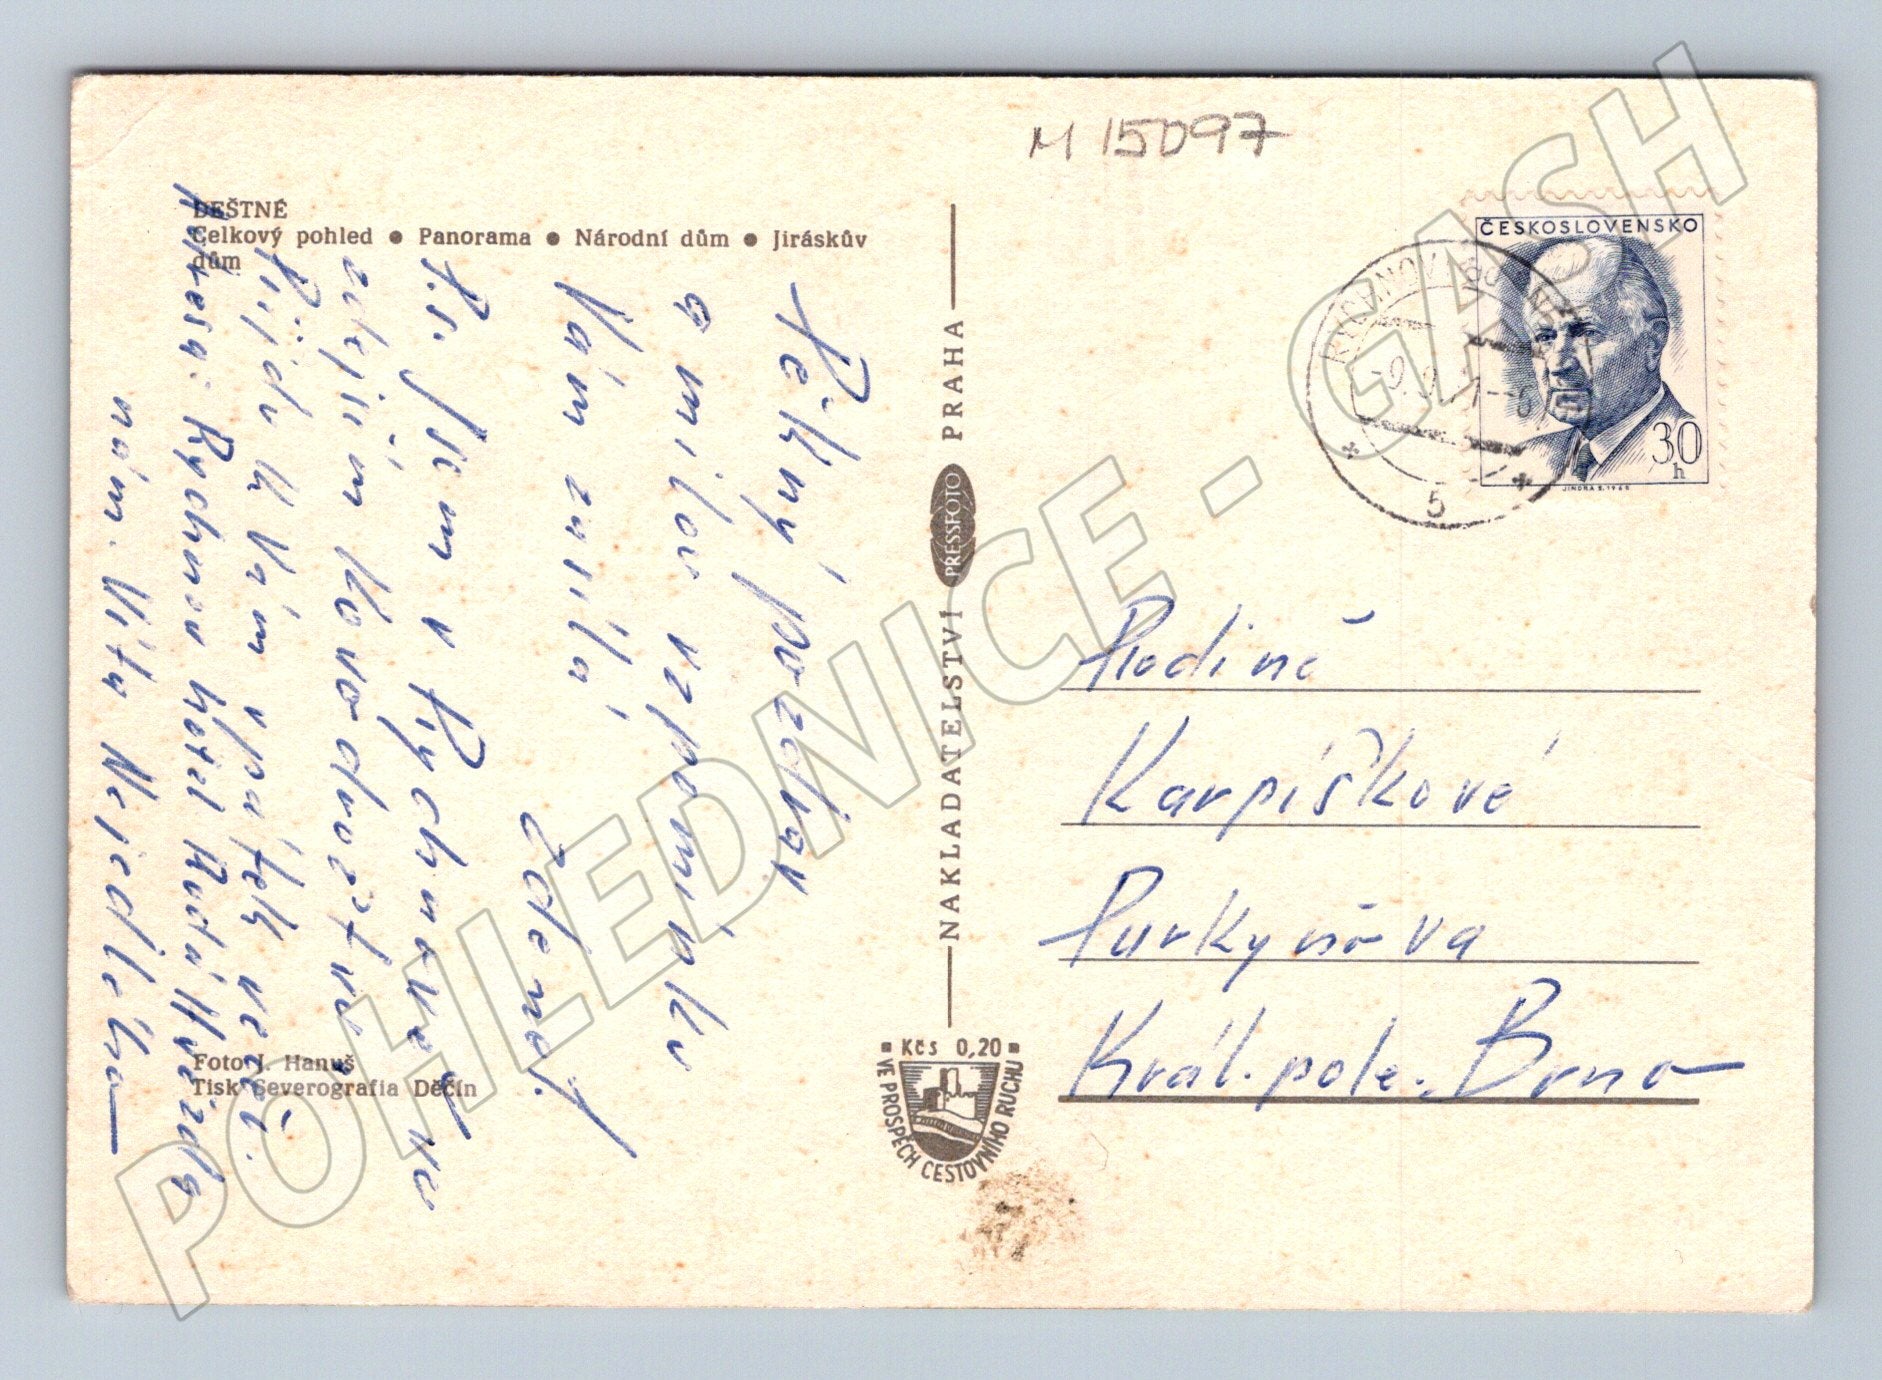 M 15097
DEŠTNÉ
Celkový pohled ● Panorama ● Národní dům ● Jiráskův
dům
Pěkný pozdrav
a milou vzpomínku
Vám zasílá
Zdena.
P.s. Jsem v Rychnově
Přijdu k Vám v pátek večer.
Adresa: Rychnov hotel Rudá Hvězda
nám. Vítá Nejedlého
Foto J. Hanuš
Tisk Severografia Děčín
NAKLADATELSTVÍ PRESSFOTO PRAHA
Kčs 0,20
VE PROSPĚCH CESTOVNÍHO RUCHU
ČESKOSLOVENSKO
30
h
JINDRA S. 1968
RYCHNOV
5
Rodině
Karpíškové
Purkyňova
Král. pole. Brno
POHLEDNICE - GASH